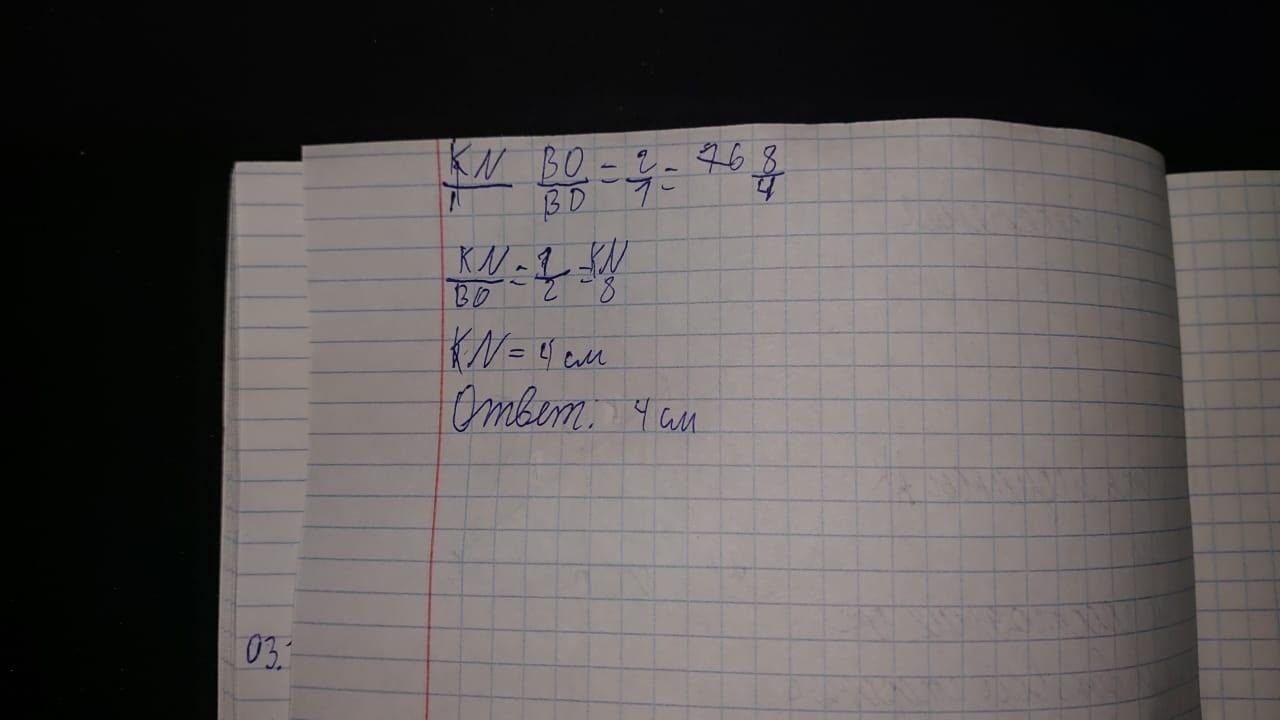 KN BO/BD = 2/1 = 8/4
KN/BO = 1/2 = KN/8
KN = 4 см
Ответ: 4 см
03.